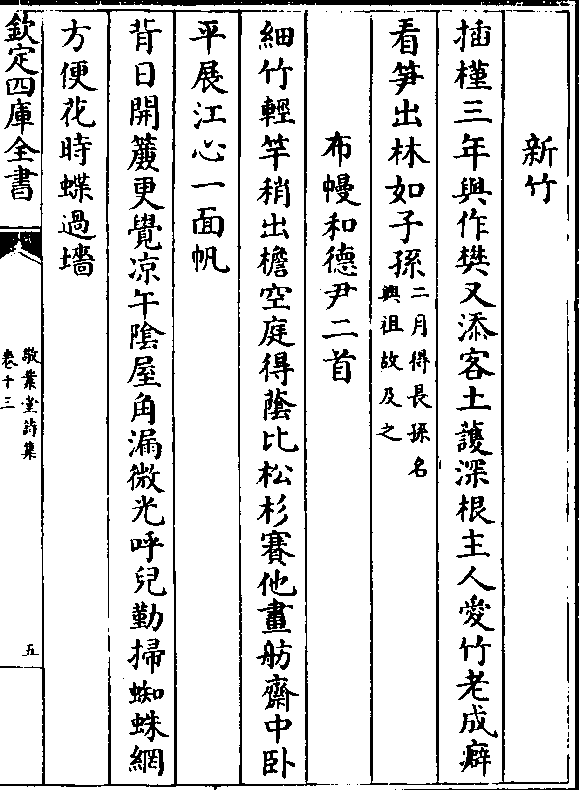 新竹
插槿三年與作樊又添客土護深根主人愛竹老成癖
看笋出林如子孫二月得長孫名
興祖故及之
布幔和德尹二首
細竹輕竿稍出檐空庭得蔭比松杉賽他畫舫齋中卧
平展江心一面帆
背日開簾更覺凉午陰屋角漏微光呼兒勤掃蜘蛛網
方便花時蝶過墻
欽定四庫全書
敬業堂詩集
卷十三
五